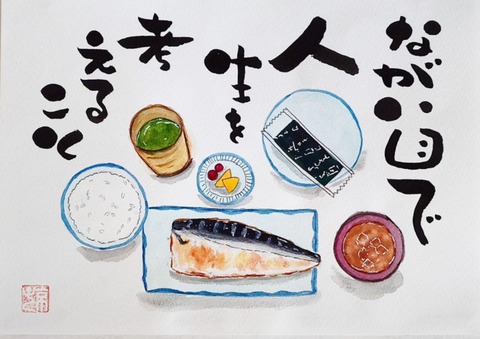 ながい目で
人
生を
考
える
こと